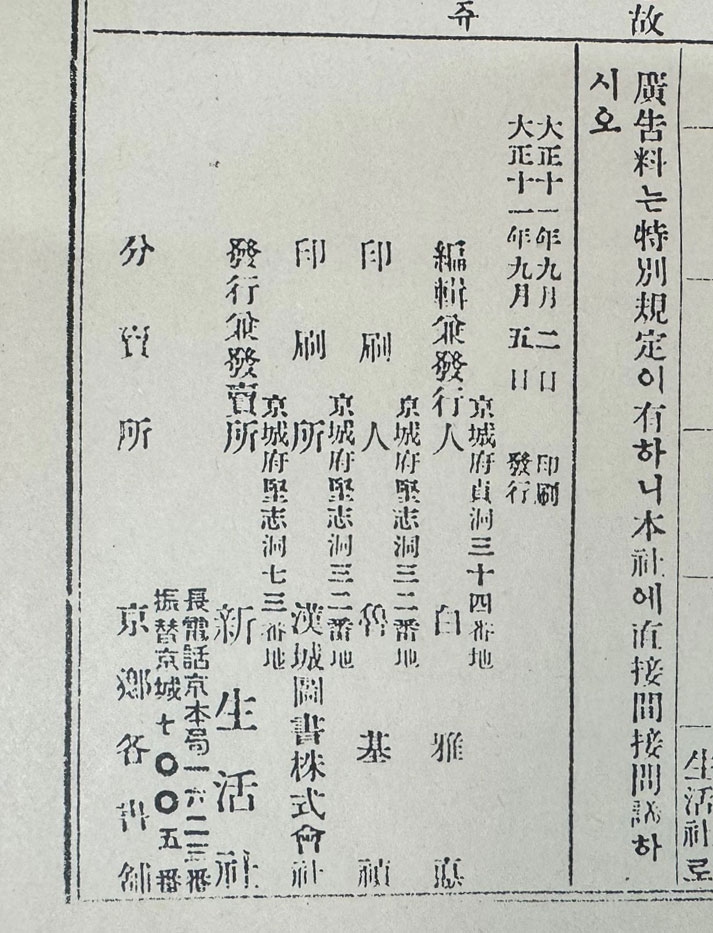 故
쥬
生活社로
廣告料는特別規定이有하니本社에直接間接問議하
시오
大正十一年九月二日 印刷
大正十一年九月五日 發行
京城府貞洞三十四番地
編輯兼發行人 白雅悳
京城府堅志洞三二番地
印刷人 魯基禎
京城府堅志洞三二番地
印刷所 漢城圖書株式會社
京城府堅志洞七三番地
發行兼發賣所 新生活社
長電話京本局一六二三番
振替京城七〇〇五番
分賣所 京鄕各書舖